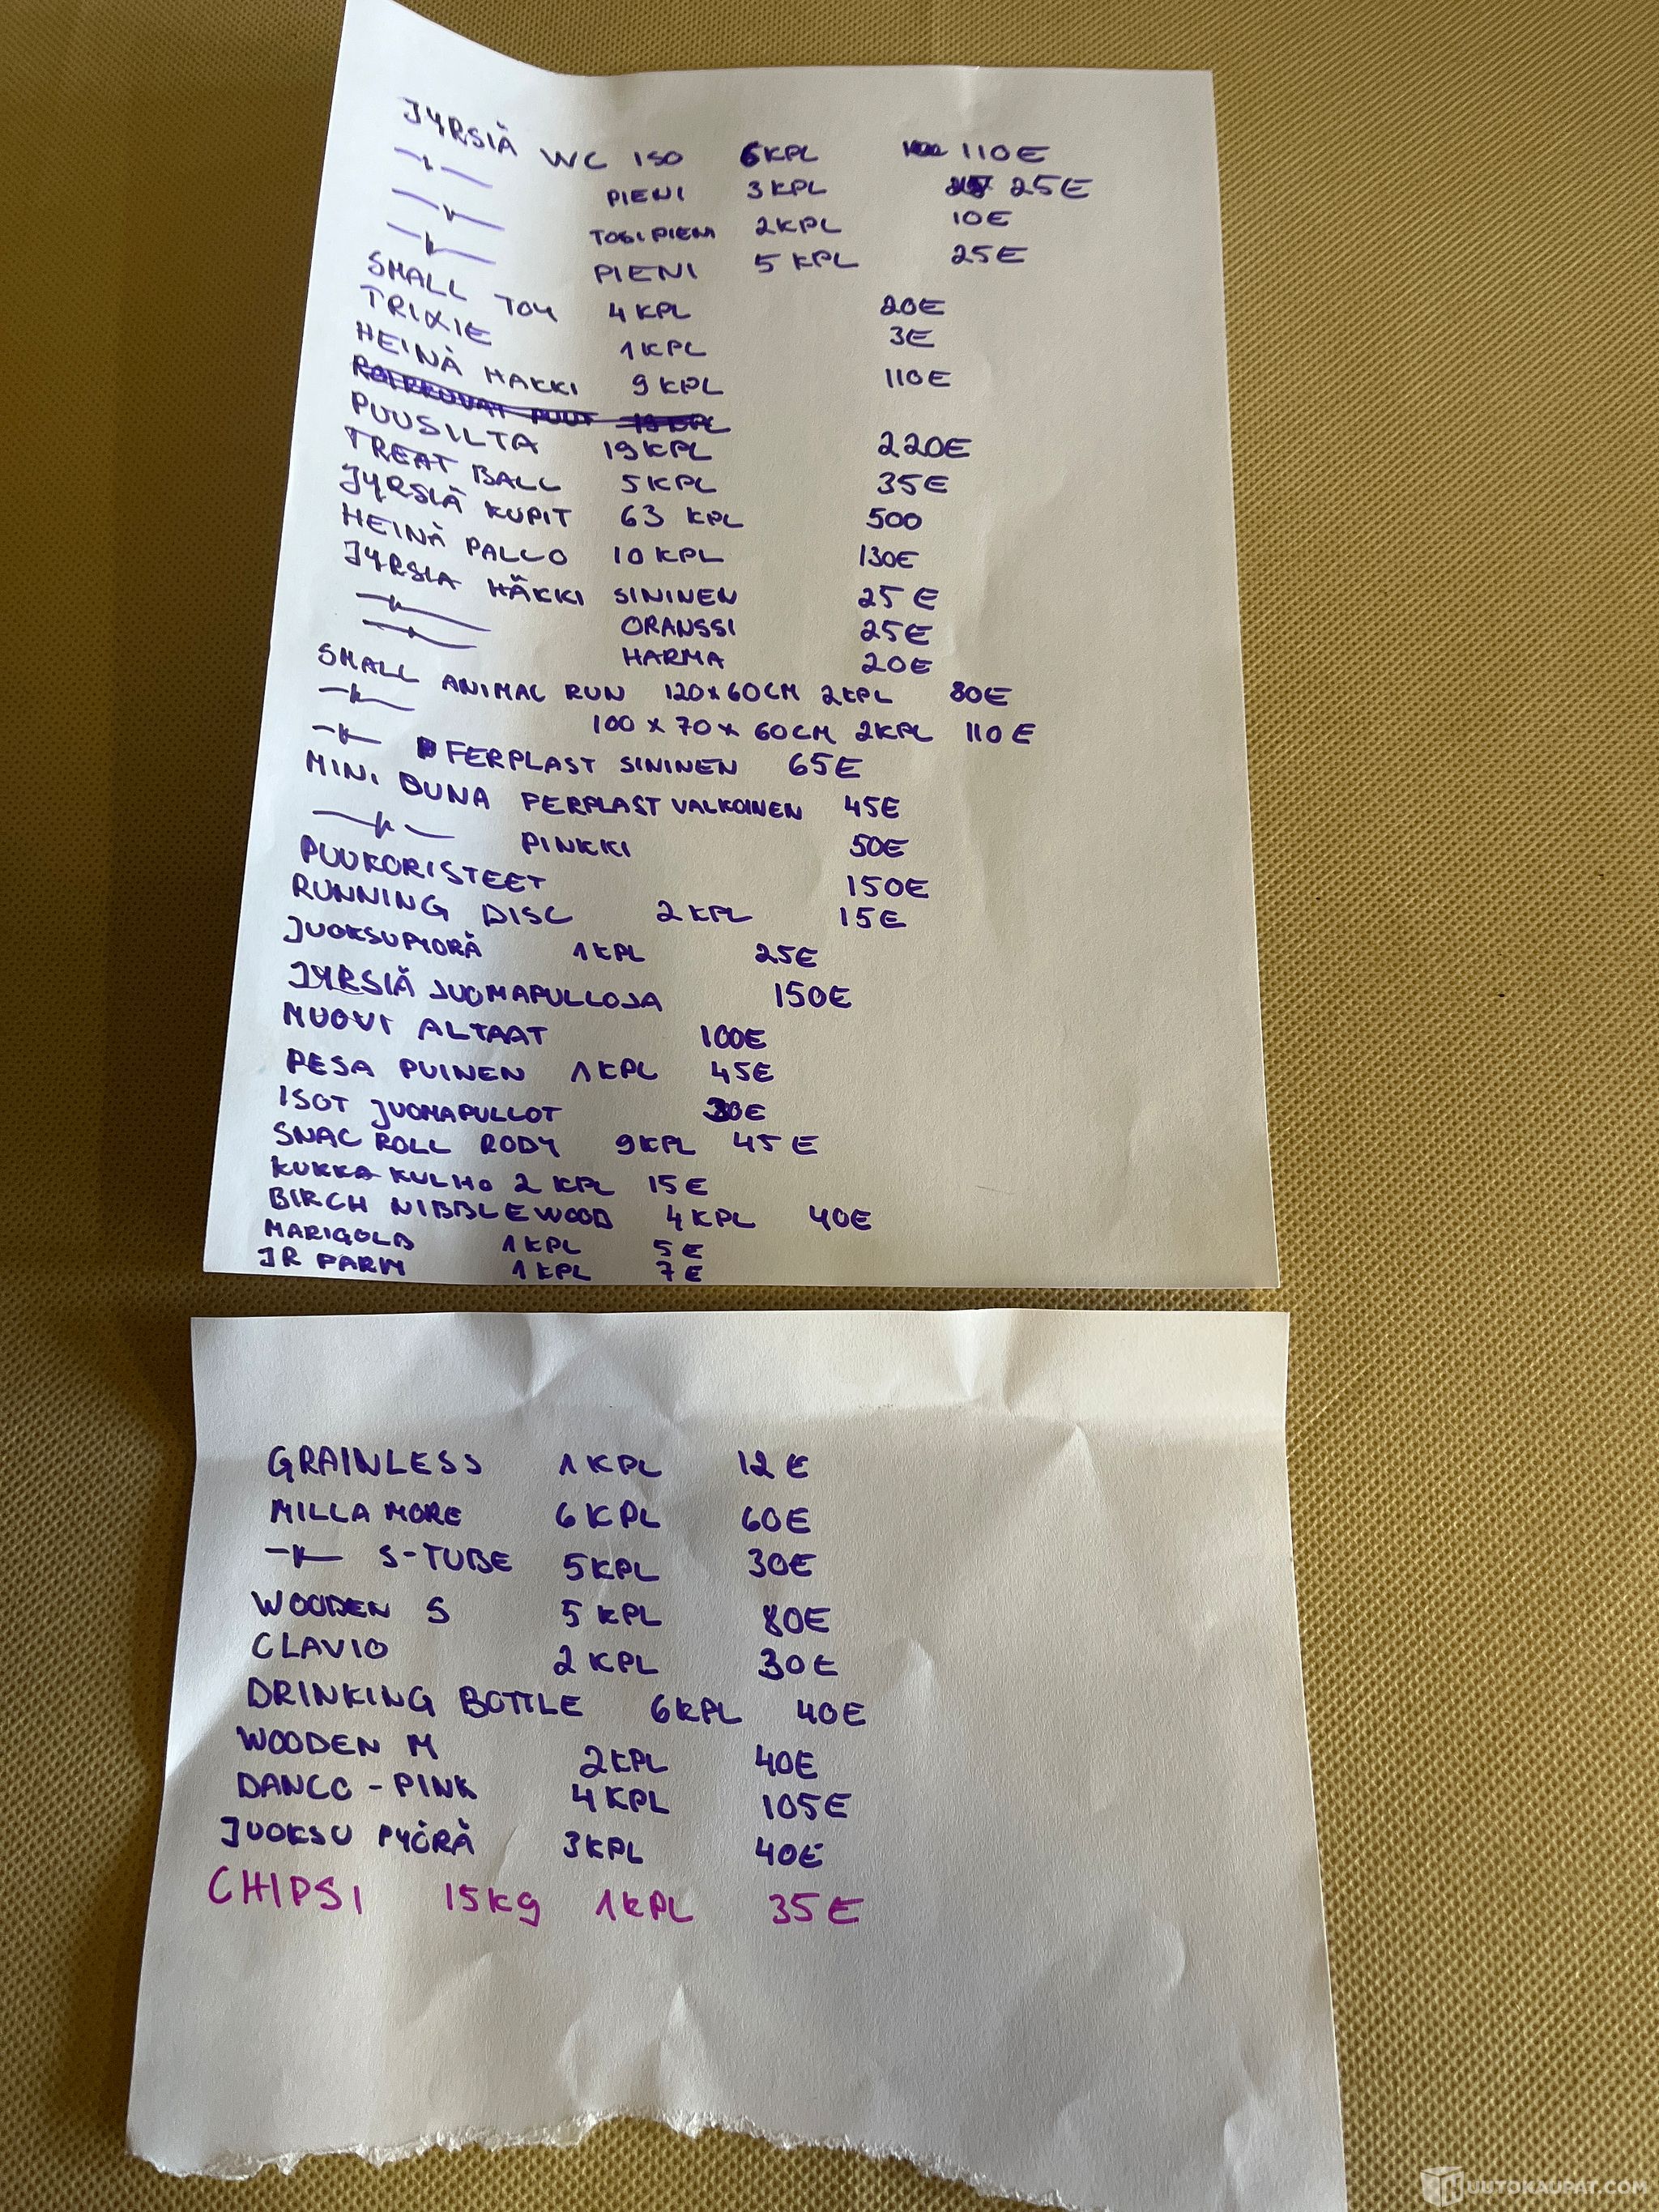 JYRSIÄ WC ISO 6KPL 110E
PIENI 3KPL 25E
TOSI PIENI 2KPL 10E
PIENI 5 KPL 25E
SMALL TOY 4KPL 20E
TRIXIE 1KPL 3E
HEINÄ HAKKI 9 KPL 110E
PUUSILTA 19KPL 220E
TREAT BALL 5KPL 35E
JYRSIÄ KUPIT 63 KPL 500
HEINÄ PALLO 10 KPL 130E
JYRSIA HÄKKI SININEN 25 E
ORANSSI 25E
HARMA 20E
SMALL ANIMAL RUN 120x60CM 2KPL 80E
100 x 70 x 60CM 2KPL 110 E
FERPLAST SININEN 65E
MINI DUNA FERPLAST VALKOINEN 45E
PINKKI 50E
PUUKORISTEET 150E
RUNNING DISC 2KPL 15E
JUOKSUPYORÄ 1KPL 25E
JYRSIÄ JUOMAPULLOJA 150E
MUOVI ALTAAT 100E
PESA PUINEN 1KPL 45E
ISOT JUOMAPULLOT 30E
SNAC ROLL RODY 9KPL 45E
KUKKA KULHO 2 KPL 15E
BIRCH NIBBLEWOOD 4KPL 40E
MARIGOLD 1KPL 5E
JR FARM 1KPL 7E
GRAINLESS 1KPL 12E
MILLA MORE 6KPL 60E
S-TUBE 5KPL 30E
WOODEN S 5 KPL 80E
CLAVIO 2 KPL 30E
DRINKING BOTTLE 6KPL 40E
WOODEN M 2KPL 40E
DANCO - PINK 4KPL 105E
JUOKSU PYÖRÄ 3KPL 40E
CHIPSI 15Kg 1KPL 35E
HUUTOKAUPAT.COM